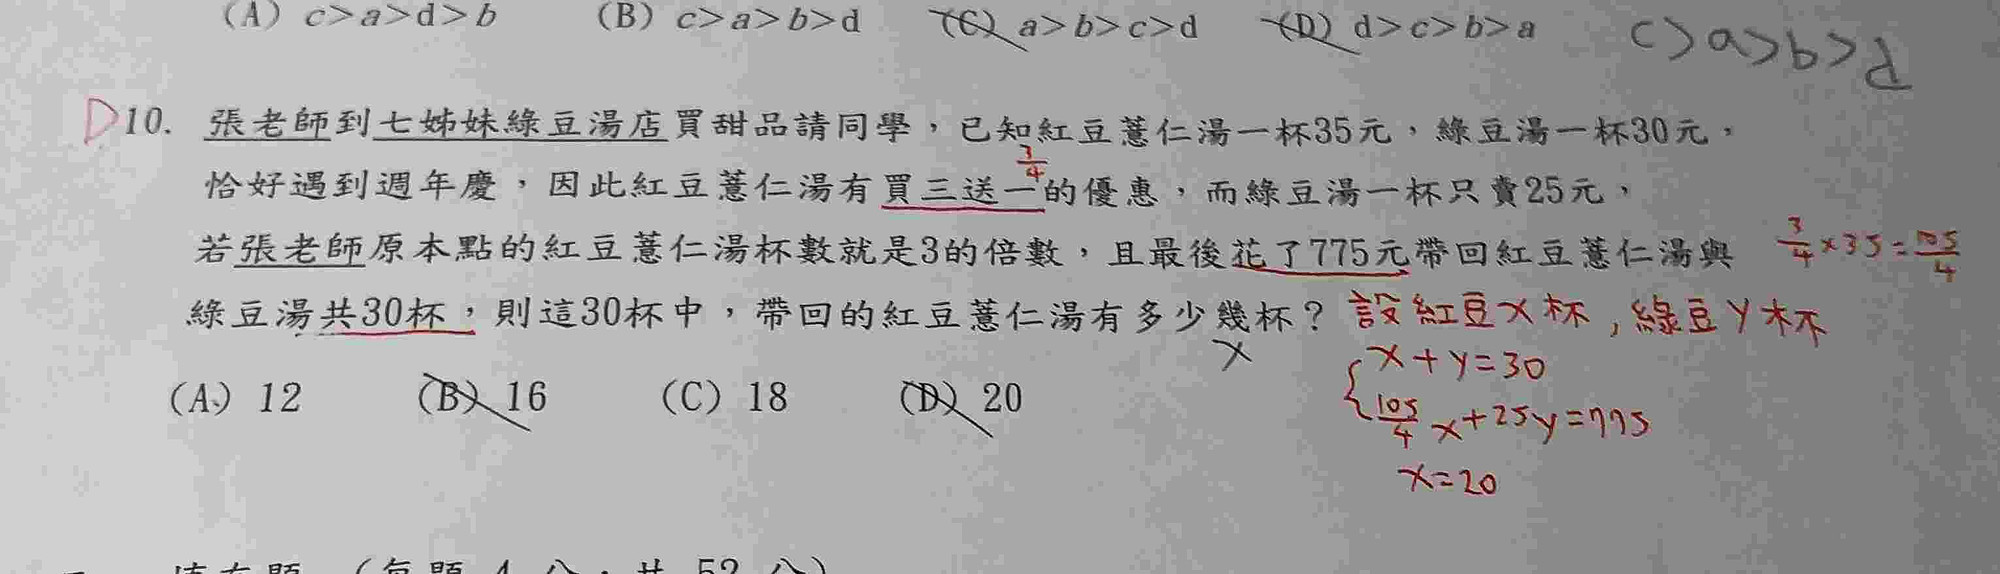 (A) c>a>d>b (B) c>a>b>d (C) a>b>c>d (D) d>c>b>a c>a>b>d
D 10. 張老師到七姊妹綠豆湯店買甜品請同學，已知紅豆薏仁湯一杯35元，綠豆湯一杯30元，
3/4
恰好遇到週年慶，因此紅豆薏仁湯有買三送一的優惠，而綠豆湯一杯只賣25元，
若張老師原本點的紅豆薏仁湯杯數就是3的倍數，且最後花了775元帶回紅豆薏仁湯與 3/4×35=105/4
綠豆湯共30杯，則這30杯中，帶回的紅豆薏仁湯有多少幾杯？ 設紅豆x杯，綠豆y杯
x
x+y=30
(A) 12 (B) 16 (C) 18 (D) 20
105/4 x+25y=775
x=20